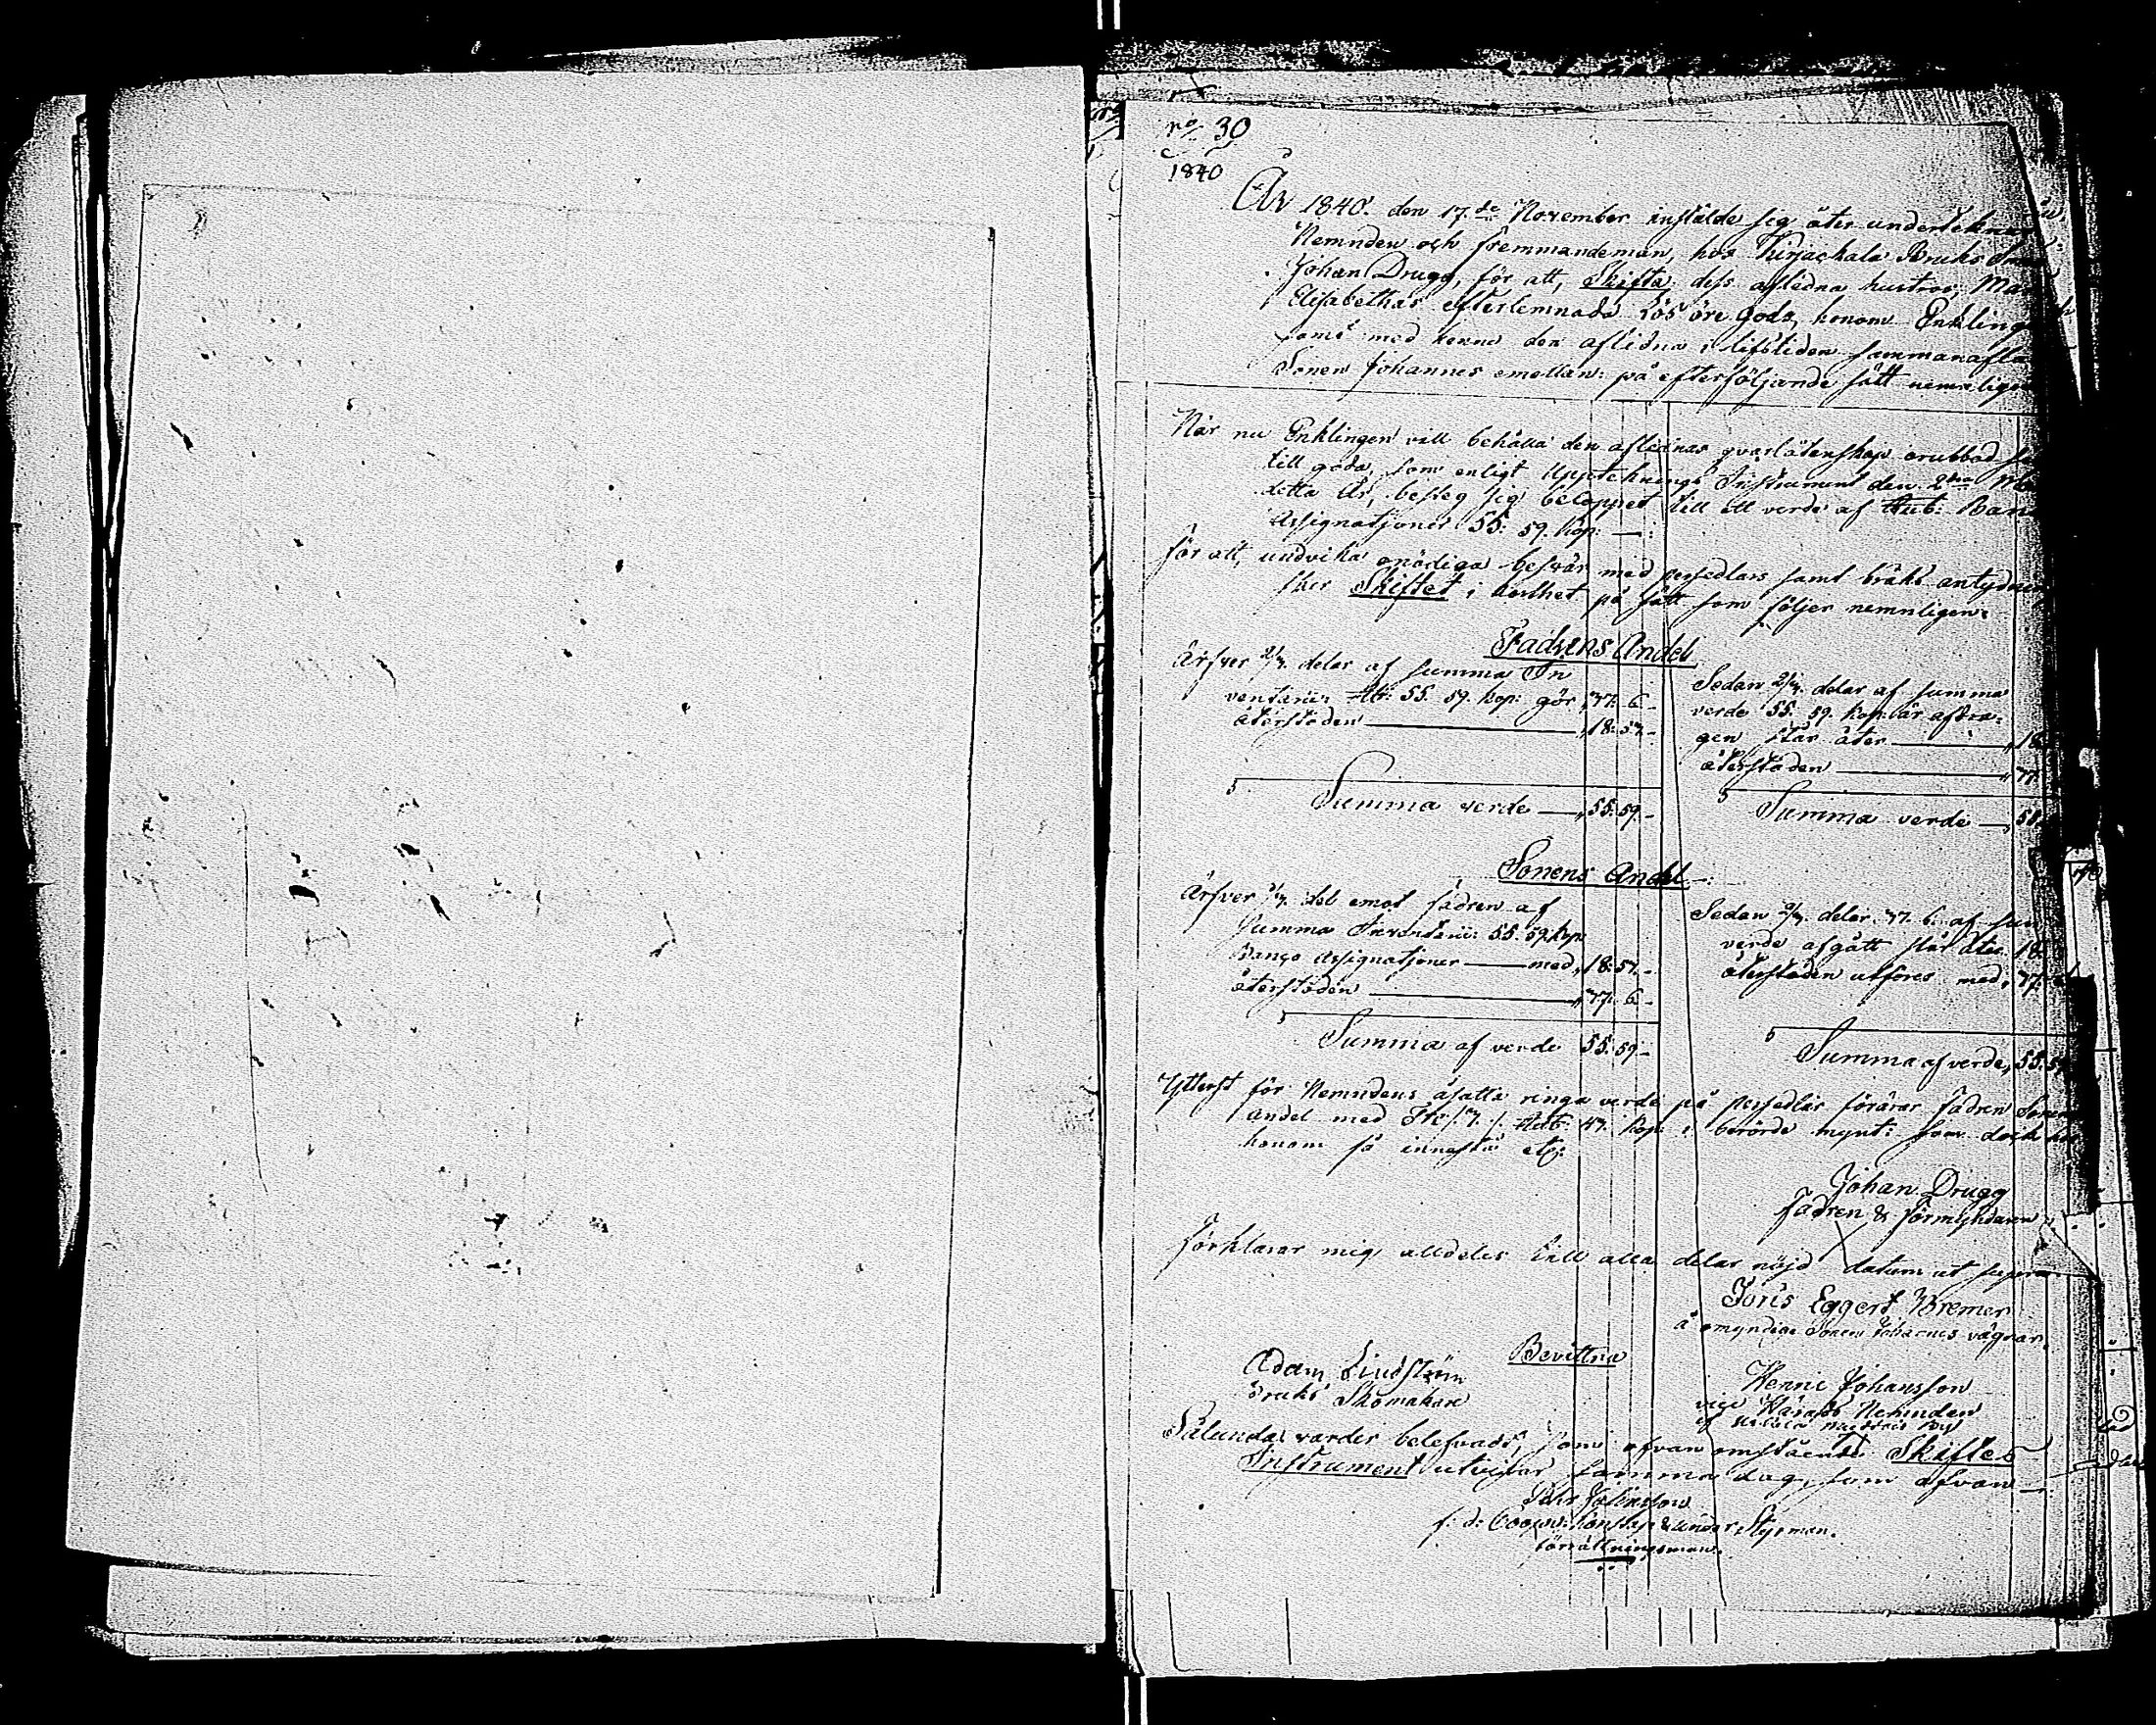 no 30
1840
År 1840. den 17.de November instälde sig åter underteknad
Nemnden och fremmandemän, hos Kirjackala Bruks
Johan Drugg, för att, Skifta dess aflidna hustros,
Elisabethas efterlemnade Lös öre Gods, honom Enklinge
samt med henne den aflidna i lifstiden sammanafla
Sonen Johannes emellan: på efterföljande sätt nemnligen
När nu Enklingen vill behålla den aflidnas qvarlåtenskap orubbad
till goda, som enligt Upptecknings Instrument den 2dra
detta År, besteg sig beloppet till ett verde af Rub: Banco
Assignationer 55. 59. Kop: —:
för att, undvika onödiga besvär med persedlars samt bråks antydnin
sker Skiftet i korthet på sätt som följer nemnligen:
Fadrens Andel
Ärfver 2/3. delar af summa In
ventarii: Rb: 55. 59. kop: gör „ 37. 6 -
återstoden — „ 18. 53. -
Summa verde — „ 55. 59. -
Sedan 2/3. delar af summa
verde 55. 59. kop: är afdra-
gen står åter — „ 18
återstoden — „ 37.
Summa verde — „ 55.
Sonens Andel —:
Ärfver 1/3. del emot fadren af
Summa Inventarii: 55. 59. kop:
Banco Assignationer — med „ 18. 53. -
återstoden — „ 37. 6 -
Summa af verde 55. 59 -
Sedan 2/3. delar 37. 6. af sum
verde afgått står åter 18.
återstoden utföres med „ 37.
Summa af verde „ 55. 5
Ytterst för Nemndens åsatte ringa verde på persedlar förärar fadren Sonens
andel med Tre /:3./. Rub: 47. Kop: i berörde mynt: som dock hos
honom få innestå etc:
Johan Drugg
Fadren & Förmyndaren
Förklarar mig alldeles till alla delar nöjd datum ut supra
Joris Eggert Bremer
å omyndige Sonen Johannes vägnar.
Bevittna
Adam Lindström
Bruks Skomakare
Henric Johansson
vice Härads Nemnden
Sålunda varder belefvadt, som ofvan omstående Skiftes
Instrument utvisar samma dag, som ofvan —:
Pehr Johansson
f: d: Coopv: Konstap: & under Styrman.
förrättningsman.